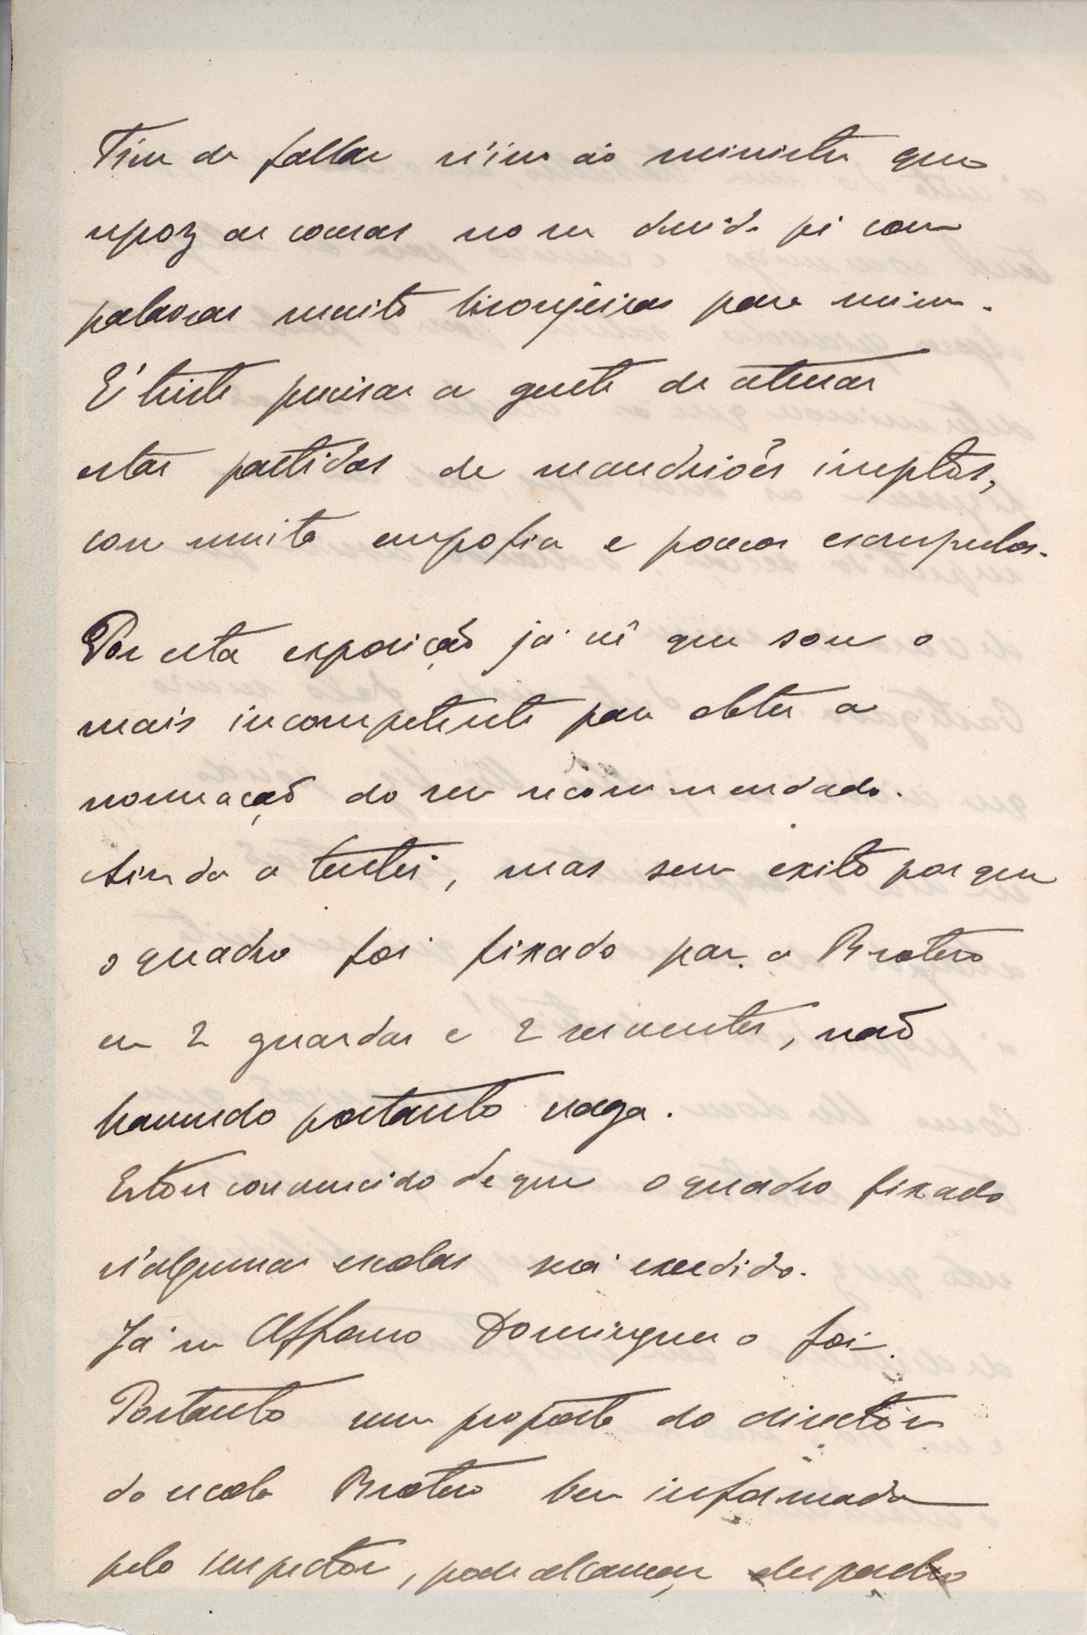 Tive de fallar n'isso ao ministro que
repoz as cousas no seu devido pé com
palavras muito lisongeiras para mim.
É triste precisar a gente de aturar
estas partidas de mandriões ineptos,
com muita empofia e poucos escrupulos.
Por esta exposição já vê que sou o
mais incompetente para obter a
nomeação do seu recommendado.
Ainda o tentei, mas sem exito porque
o quadro foi fixado para a Brotero
em 2 guardas e 2 serventes, não
havendo portanto vaga.
Estou convencido de que o quadro fixado
n'algumas escolas será excedido.
Já na Affonso Domingues o foi.
Portanto uma proposta do director
da escola Brotero bem informada
pelo inspector, pode alcançar despacho